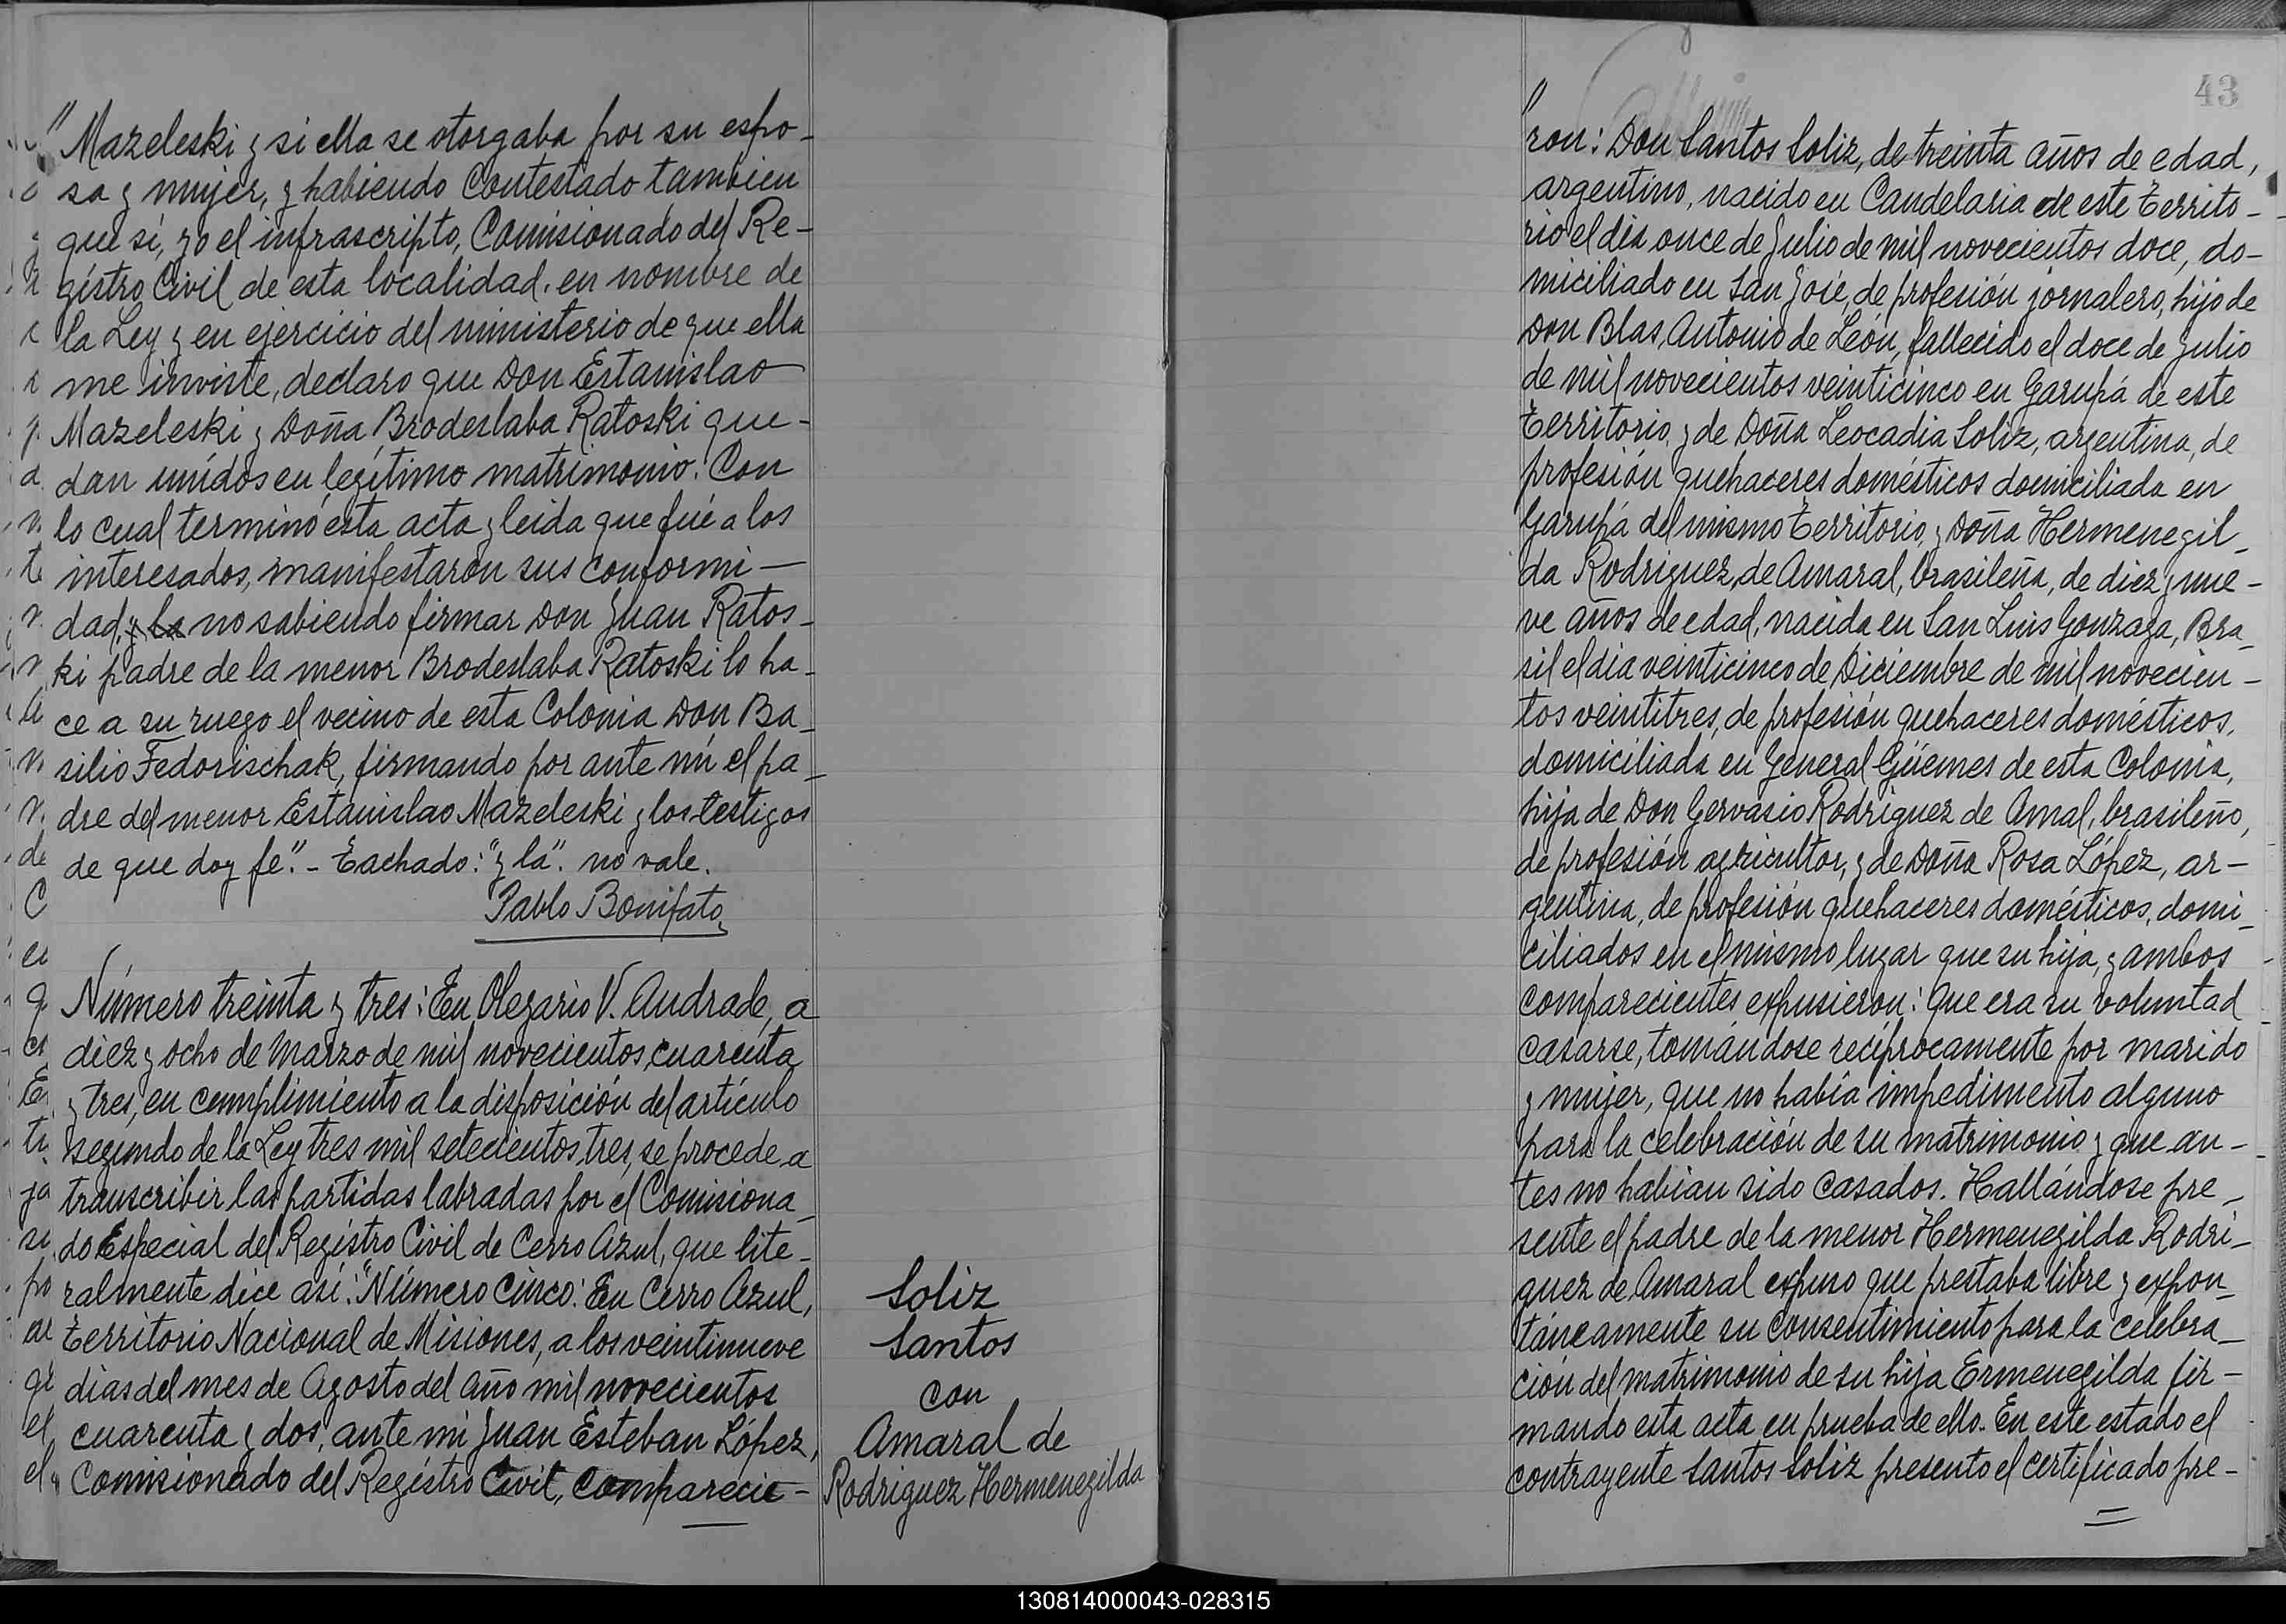 " Mazeleski y si ella se otorgaba por su espo-
sa y mujer, y habiendo contestado tambien
que sí, yo el infrascripto, Comisionado del Re-
gistro Civil de esta localidad. en nombre de
la Ley y en ejercicio del ministerio de que ella
me inviste, declaro que Don Estanislao
Mazeleski y Doña Brodeslaba Ratoski que-
dan unidos en legítimo matrimonio. Con
lo cual terminó esta acta y leida que fué a los
interesados, manifestaron sus conformi-
dad, y la no sabiendo firmar Don Juan Ratos-
ki padre de la menor Brodeslaba Ratoski lo ha-
ce a su ruego el vecino de esta Colonia Don Ba-
silio Fedorischak, firmando por ante mí el pa-
dre del menor Estanislao Mazeleski y los testigos
de que doy fe". - Tachado: "y la". no vale.
Pablo Bonifato
Número treinta y tres: En Olegario V. Andrade, a
diez y ocho de Marzo de mil novecientos cuarenta
y tres, en cumplimiento a la disposición del artículo
segundo de la Ley tres mil setecientos tres, se procede a
transcribir las partidas labradas por el Comisiona-
do Especial del Registro Civil de Cerro Azul, que lite-
ralmente dice así: "Número Cinco: En Cerro Azul,
Territorio Nacional de Misiones, a los veintinueve
dias del mes de Agosto del año mil novecientos
cuarenta y dos, ante mi Juan Esteban López,
Comisionado del Registro Civil, comparecie-
Soliz
Santos
con
Amaral de
Rodriguez Hermenegilda
43
ron: Don Santos Soliz, de treinta años de edad,
argentino, nacido en Candelaria de este Territo-
rio el día once de Julio de mil novecientos doce, do-
miciliado en San José, de profesión jornalero, hijo de
Don Blas Antonio de León, fallecido el doce de Julio
de mil novecientos veinticinco en Garupá de este
Territorio, y de Doña Leocadia Soliz, argentina, de
profesión quehaceres domésticos domiciliada en
Garupá del mismo Territorio, y Doña Hermenegil-
da Rodriguez de Amaral, brasileña, de diez y nue-
ve años de edad, nacida en San Luis Gonzaga, Bra-
sil el día veinticinco de Diciembre de mil novecien-
tos veintitres, de profesión quehaceres domésticos,
domiciliada en General Güemes de esta Colonia,
hija de Don Gervasio Rodriguez de Amal, brasileño,
de profesión agricultor, y de Doña Rosa López, ar-
gentina, de profesión quehaceres domésticos, domi-
ciliados en el mismo lugar que su hija, y ambos
comparecientes expusieron: Que era su voluntad
casarse, tomándose recíprocamente por marido
y mujer, que no había impedimento alguno
para la celebración de su matrimonio y que an-
tes no habian sido casados. Hallándose pre-
sente el padre de la menor Hermenegilda Rodri-
guez de Amaral expuso que prestaba libre y expon-
táneamente su consentimiento para la celebra-
ción del matrimonio de su hija Ermenegilda fir-
mando esta acta en prueba de ello. En este estado el
contrayente Santos Soliz presento el certificado pre-
130814000043-028315